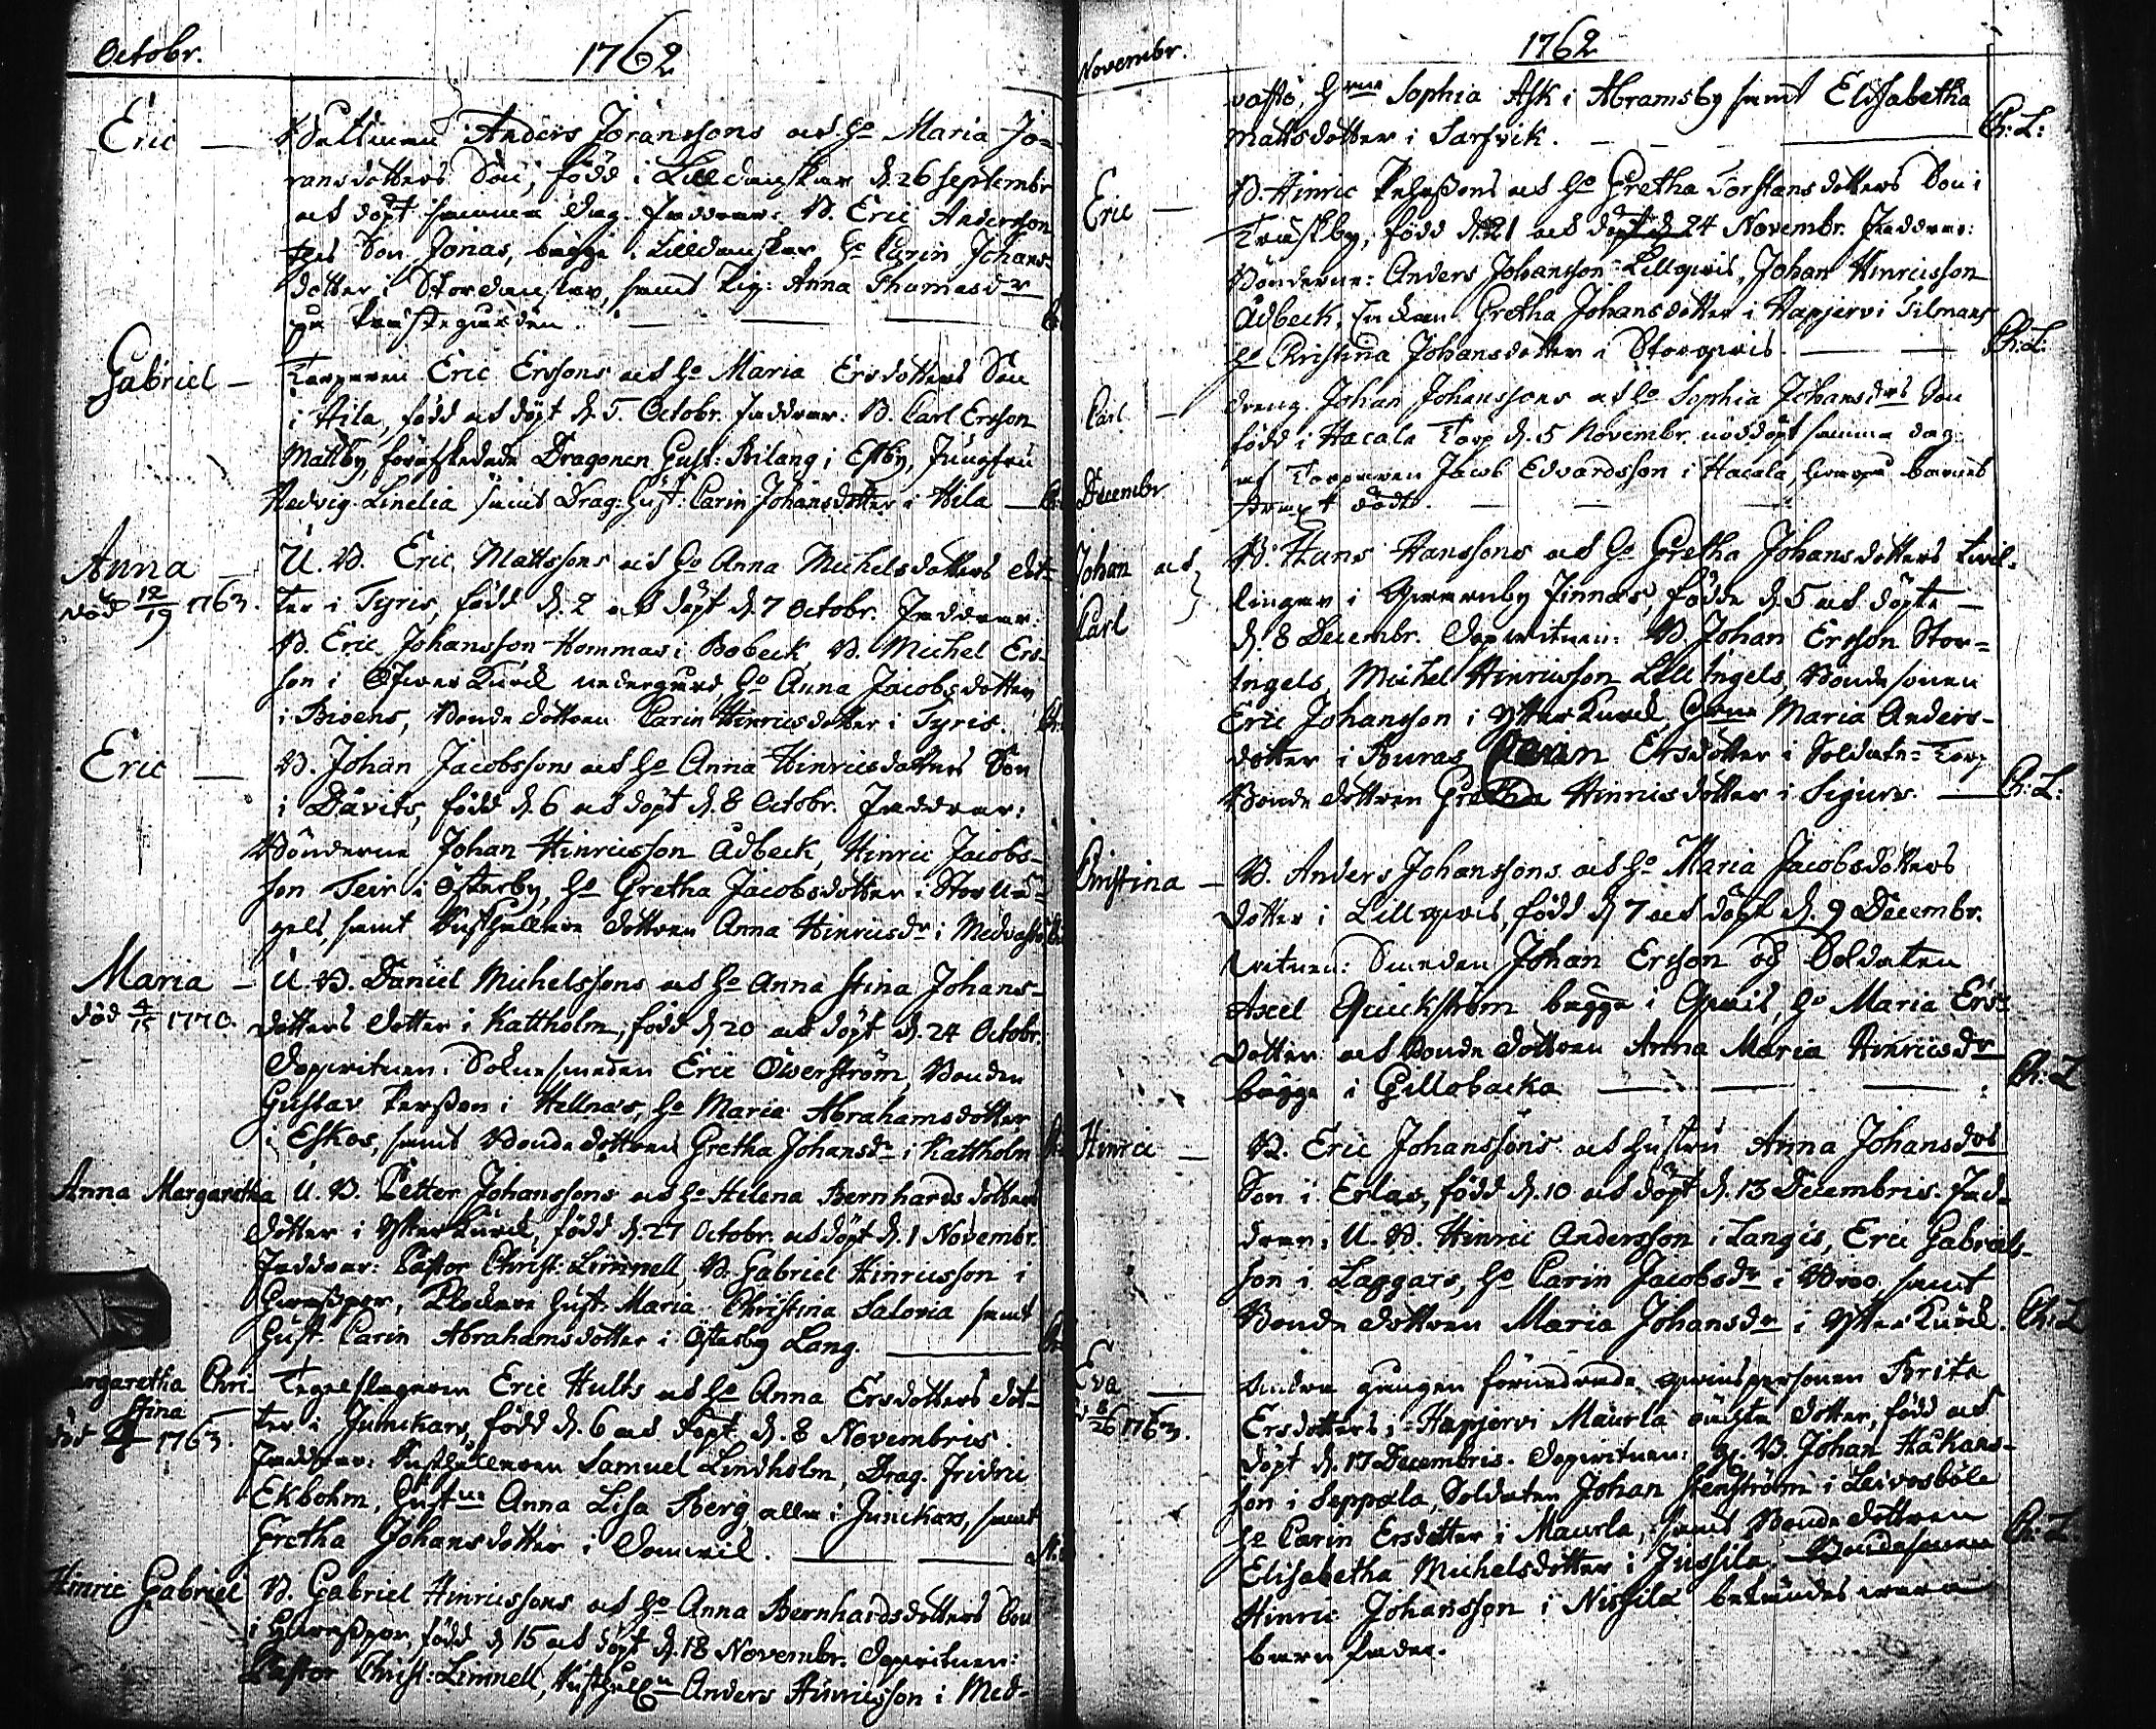 Octobr.
1762
Eric — Anders Joranssons och Ho Maria Jo=
ransdotters Son, född i Lilldanskar d. 26 Septembr
och döpt samma dag. Faddrar: B. Eric Andersson
Son Jonas, bägge i Lilldanskar Ho Carin Johans=
dotter i Stordanskar, samt Pig: Anna Thomasdr
på Prästegården.
Gabriel — Torparen Eric Erssons och Ho Maria Ersdotters Son
i Hila, född och döpt d. 5 Octobr. Faddrar: B. Carl Ersson
Mattby, förafskedade Dragonen Gust: Bilang i Esby, Jungfru
Hedvig Linelia samt Drag: Hust: Carin Johansdotter i Hila
Anna — U. B. Eric Mattssons och Ho Anna Michelsdotters dot=
död 12/19 1763. ter i Tyris, född d. 2 och döpt d. 7 Octobr. Faddrar:
B. Eric Johansson Hommas i Bobeck B. Michel Ers=
son i Öfver Kurck nedergård, Ho Anna Jacobsdotter
i Bisens, Bonde dottren Carin Hinricsdotter i Tyris.
Eric — B. Johan Jacobssons och Ho Anna Hinricsdotters Son
i Davits, född d. 6 och döpt d. 8 Octobr. Faddrar:
Bönderne Johan Hinricsson Ådbeck, Hinric Jacobs=
son Teir i Österby, Ho Gretha Jacobsdotter i Stor
gels, samt Rusthållare dottren Anna Hinricsdr i Medvasto
Maria — U. B. Daniel Michelssons och Ho Anna Stina Johans=
död 4/15 1770. dotters dotter i Kattholm, född d. 20 och döpt d. 24 Octobr.
Dopvitnen: Sokne smeden Eric Öwerström, Bonden
Gustav Persson i Hellnäs, Ho Maria Abrahamsdotter
i Eskos, samt Bonde dottren Gretha Johansdr i Kattholm
Anna Margaretha U. B. Petter Johanssons och Ho Helena Bernhardsdotters
dotter i Ytter Kurck, född d. 27 Octobr. och döpt d. 1 Novembr.
Faddrar: Pastor Christ: Limnell, B. Gabriel Hinricsson i
Klockare Hust: Maria Christina Salovia samt
Hust: Carin Abrahamsdotter i Österby Lang.
Margaretha Chri- Tegelslagaren Eric Hults och Ho Anna Ersdotters dot=
stina — ter i Junckars, född d. 6 och döpt d. 8 Novembris.
död 1763. Faddrar: Rusthållaren Samuel Lindholm, Drag. Fridric
Ekbohm, Hustrun Anna Lisa Berg, alla i Junckars, samt
Gretha Johansdotter i Domvik.
Hinric Gabriel B. Gabriel Hinricssons och Ho Anna Bernhardsdotters Son
i född d. 15 och döpt d. 18 Novembr. Dopvitnen:
Pastor Christ: Limnell, Anders Hinricsson i Med-
Novembr.
1762
vasto, Sophia Ask i Abramsby samt Elisabetha
Mattsdotter i Sarfvik. Ch: L:
Eric — B. Hinric och Ho Gretha Torstansdotters Son i
Träskby, född d. 21 och döpt d. 24 Novembr. Faddrar:
Bönderne: Anders Johansson Lillqvis, Johan Hinricsson
Ådbeck, Enckan Gretha Johansdotter i Hapjervi Tilmans
Ho Christina Johansdotter i Storqvis. Ch: L:
Carl — Dreng. Johan Johanssons och Ho Sophia Johansdrs Son
född i Hacala Torp d. 5 Novembr. nöddöpt samma dag
af Torparen Jacob Edvardsson i Hacala, barnet
straxt dödt.
Decembr
Johan och B. Hans Hanssons och Ho Gretha Johansdotters twil=
lingar i Qvarnby Finnäs, födde d. 5 och döpte
Carl d. 8 Decembr. Dopvitnen: B. Johan Ersson Stor=
Ingels, Michel Hinricsson Lill Ingels, Bonde sonen
Eric Johansson i Ytter Kurck, Maria Anders-
dotter i Buras, Carin Ersdotter i Soldate-Torp
Bonde dottren Gretha Hinricsdotter i Sigurs. Ch: L:
Christina — B. Anders Johanssons och Ho Maria Jacobsdotters
dotter i Lillqvis, född d. 7 och döpt d. 9 Decembr.
Vitnen: Smeden Johan Ersson och Soldaten
Axel Quickström bägge i Qvis, Ho Maria Ers=
dotter och Bonde dottren Anna Maria Hinricsdr
bägge i Gillobacka Ch: L
Hinric — B. Eric Johanssons och Hustru Anna Johansdrs
Son i Erlas, född d. 10 och döpt d. 13 Decembris. Fad=
drar: U. B. Hinric Andersson i Langis, Eric Gabriels-
son i Laggars, Ho Carin Jacobsdr i Broo samt
Bonde dottren Maria Johansdr i Ytter Kurck. Ch: L
Eva — Andra gången förnedrade qwinspersonen Brita
8/26 1763. Ersdotters i Hapjervi Maurla oächta dotter, född och
döpt d. 17 Decembris. Dopvitnen: B. Johan Håkans-
son i Seppala, Soldaten Johan Stenström i Leivosböle
Ho Carin Ersdotter i Maurla, samt Bonde dottren
Elisabetha Michelsdotter i Jussila. Bondesonen Ch: L
Hinric Johansson i Nissila bekändes wara
barn fader.